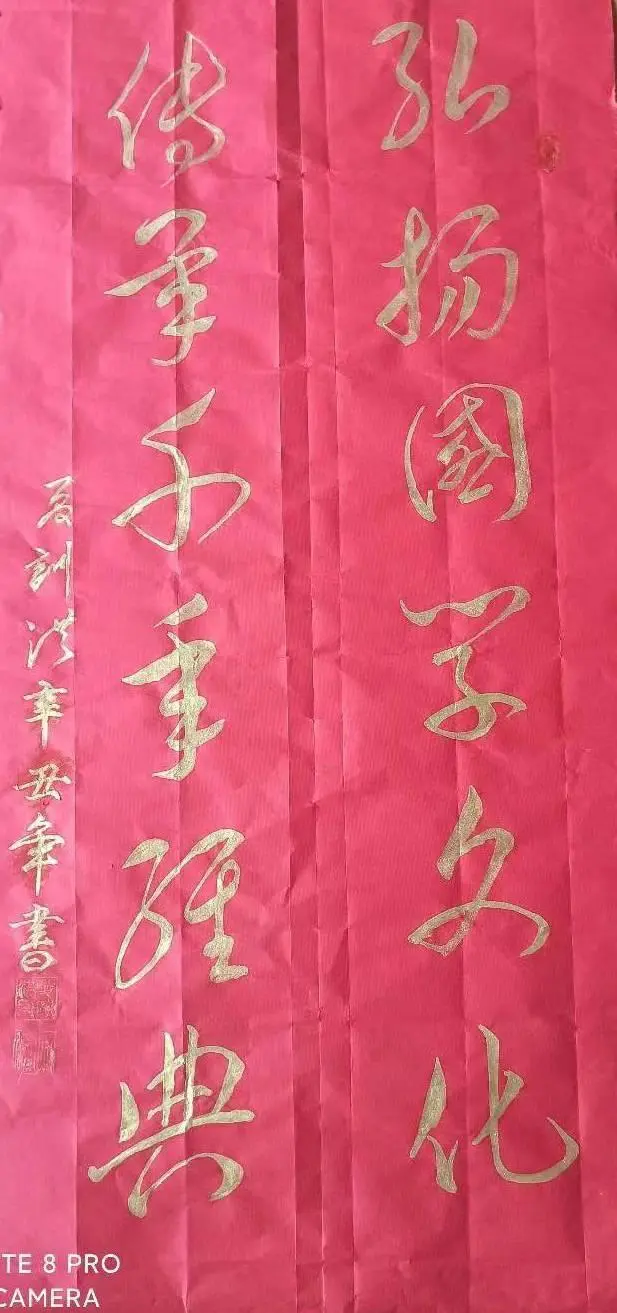 弘扬國学文化
传承千年经典
训洪辛丑年書
TE 8 PRO
CAMERA